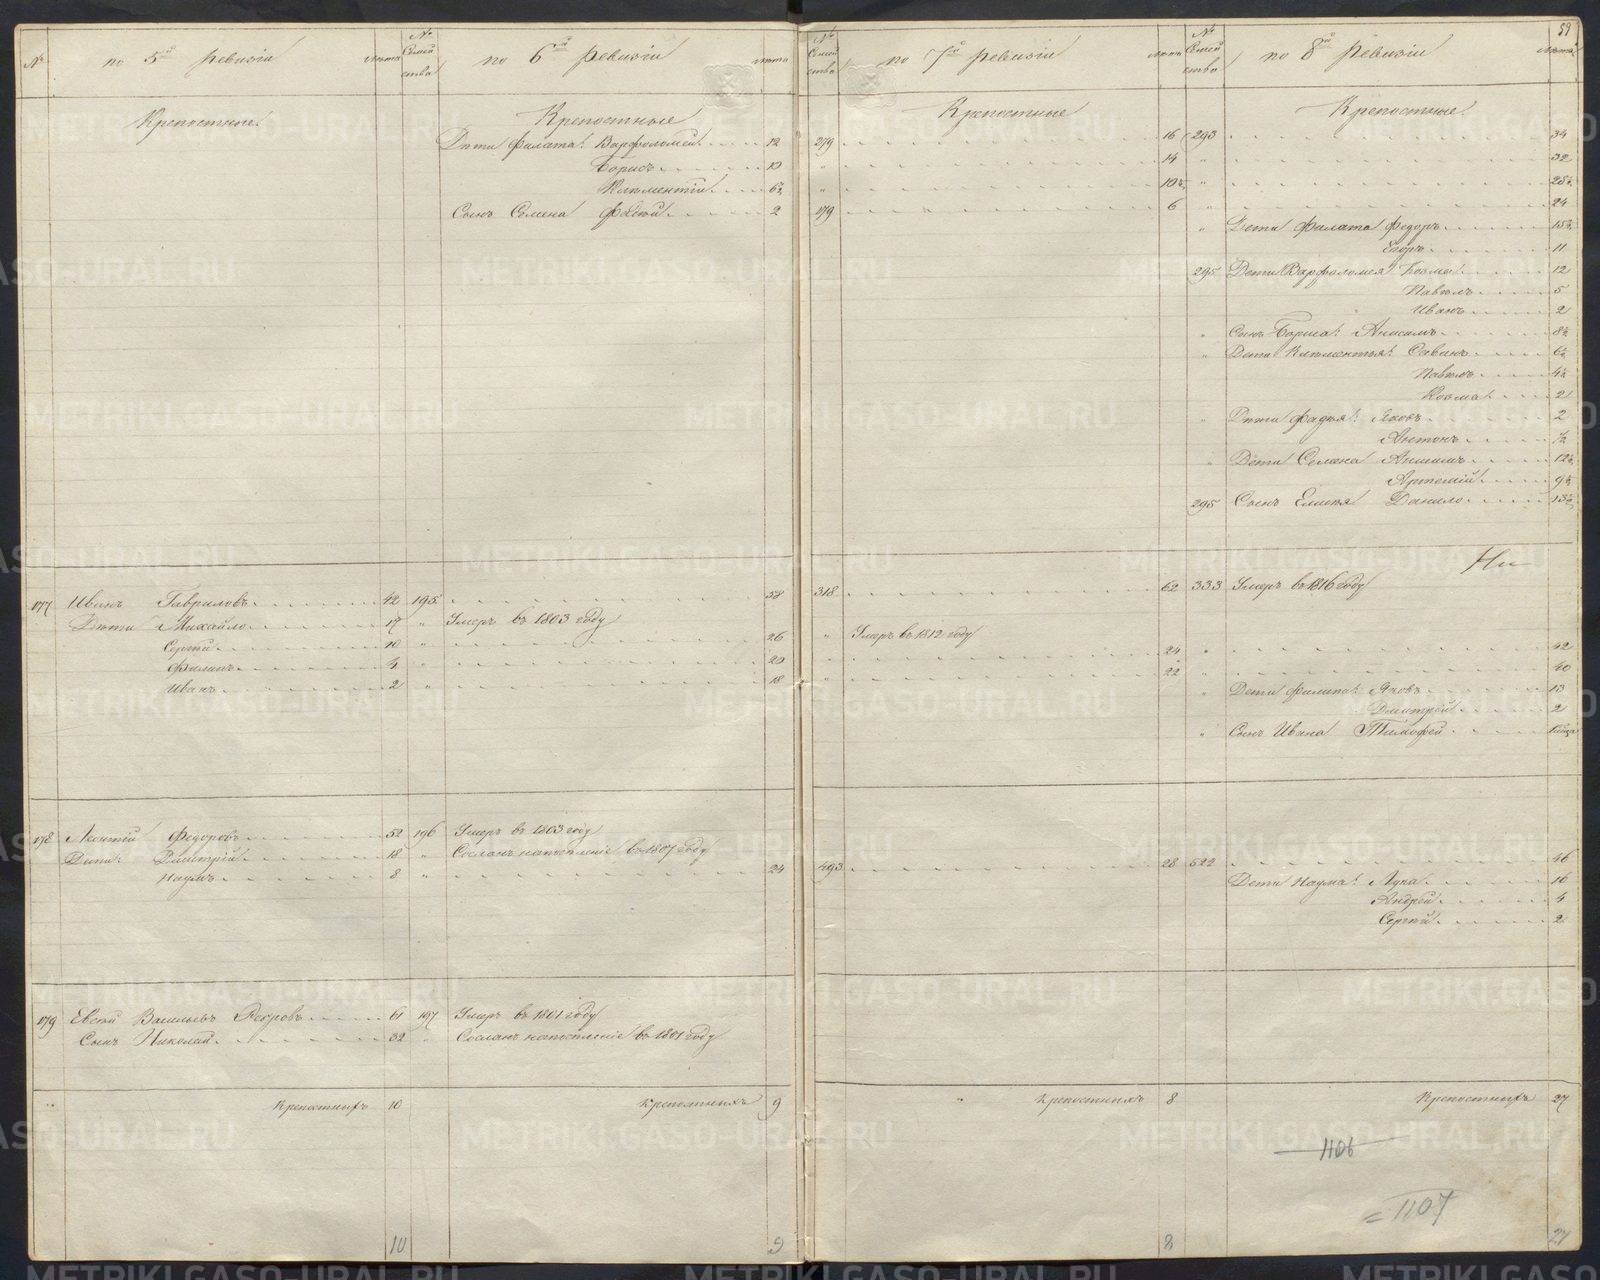 59
№ по 5й ревизiи лѣта № Семейства по 6й ревизiи лѣта
№ Семейства по 7й ревизiи лѣта № Семейства по 8й ревизiи лѣта
Крепостные Крепостные Крепостные Крепостные
Дѣти Филата: Варфоломей 12 279 16 293 34
Борисъ 10 " 14 " 32
Клементiй 6½ " 10½ " 28½
Сынъ Семена Фадей 2 179 6 " 24
" Дети Филата Федоръ 15½
Егоръ 11
295 Дети Варфоломея Козма 12
Павелъ 5
Иванъ 2
" Сынъ Бориса: Анисимъ 8½
" Дети Клементья: Савинъ 6½
Павелъ 4½
Козма 2
" Дѣти Фадея: Яковъ 2
Антонъ ½
" Дети Семена Анисимъ 12½
Артемiй 9½
295 Сынъ Елисея Данило 13½
177 Иванъ Гавриловъ 42 195 58 318 62 333 Умеръ въ 1816 году
Дѣти Михайло 17 " Умеръ въ 1803 году
Сергей 10 " 26 " Умеръ въ 1812 году
Филипъ 4 " 20 " 24 " 42
Иванъ 2 " 18 " 22 " 40
" Дети Филипа: Яковъ 13
Дмитрей 2
" Сынъ Ивана Тимофей
178 Леонтiй Федоровъ 52 196 Умеръ въ 1803 году
Дети: Дмитрiй 18 " Сосланъ на поселенiе въ 1807 году
Наумъ 8 " 24 493 28 522 46
Дети Наума: Лука 16
Андрей 4
Сергей 2
179 Евсей Васильевъ 61 197 Умеръ въ 1801 году
Сынъ Николай 32 " Сосланъ на поселенiе въ 1801 году
Крепостныхъ 10 Крепостныхъ 9 Крепостныхъ 8 Крепостныхъ 27
1106
= 1107
10 9 8 27
METRIKI.GASO-URAL.RU